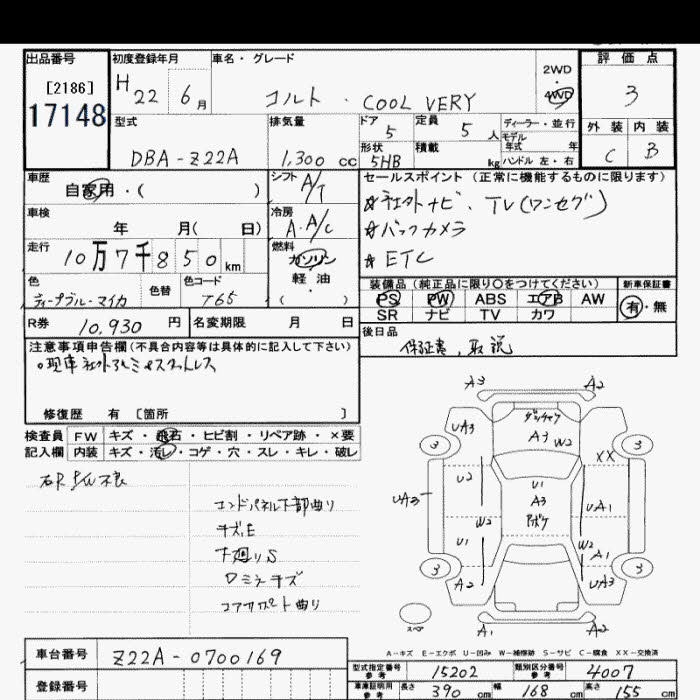 出品番号
[2186]
17148
初度登録年月
H 22 6月
車名・グレード
コルト・ COOL VERY
2WD
・
4WD
評価点
3
型式
DBA-Z22A
排気量
1,300 cc
ドア 5
定員 5人
ディーラー・並行
モデル
年式 年
形状 5HB
積載 kg
ハンドル 左・右
外装 内装
C B
車歴
自家用・( )
シフト A/T
車検
年 月( 日)
冷房 A・A/C
走行
10万7千850km
燃料
ガソリン
軽油
・
( )
色
ディープブルーマイカ
色替
色コード
T65
セールスポイント(正常に機能するものに限ります)
☆社外ナビ、TV(ワンセグ)
☆バックカメラ
☆ETC
装備品(純正品に限り〇をつけてください)
PS PW ABS エアB AW
SR ナビ TV カワ
新車保証書
有・無
R券 10,930 円
名変期限 月 日
後日品
保証書、取説
注意事項申告欄(不具合内容等は具体的に記入して下さい)
修復歴 有 〔箇所 〕
検査員
記入欄
FW キズ・飛石・ヒビ割・リペア跡・×要
内装 キズ・汚レ・コゲ・穴・スレ・キレ・破レ
エンドパネル下部曲り
キズ、E
下廻りS
Dミラーキズ
コアサポート曲り
A3 A2
ダッシャク
UA3 A3 W2
3 3
XX
U2 U1
A3
UA3 UA1
W2 アボケ
U1 W2
A1
3 3
A2 UA3
スペア
A1 A2
A-キズ E-エクボ U-凹み W-補修跡 S-サビ C-腐食 XX-交換済
車台番号 Z22A-0700169
登録番号
型式指定番号
参考
15202
類別区分番号
参考
4007
車庫証明用
参考
長さ 390 cm 幅 168 cm 高さ 155 cm